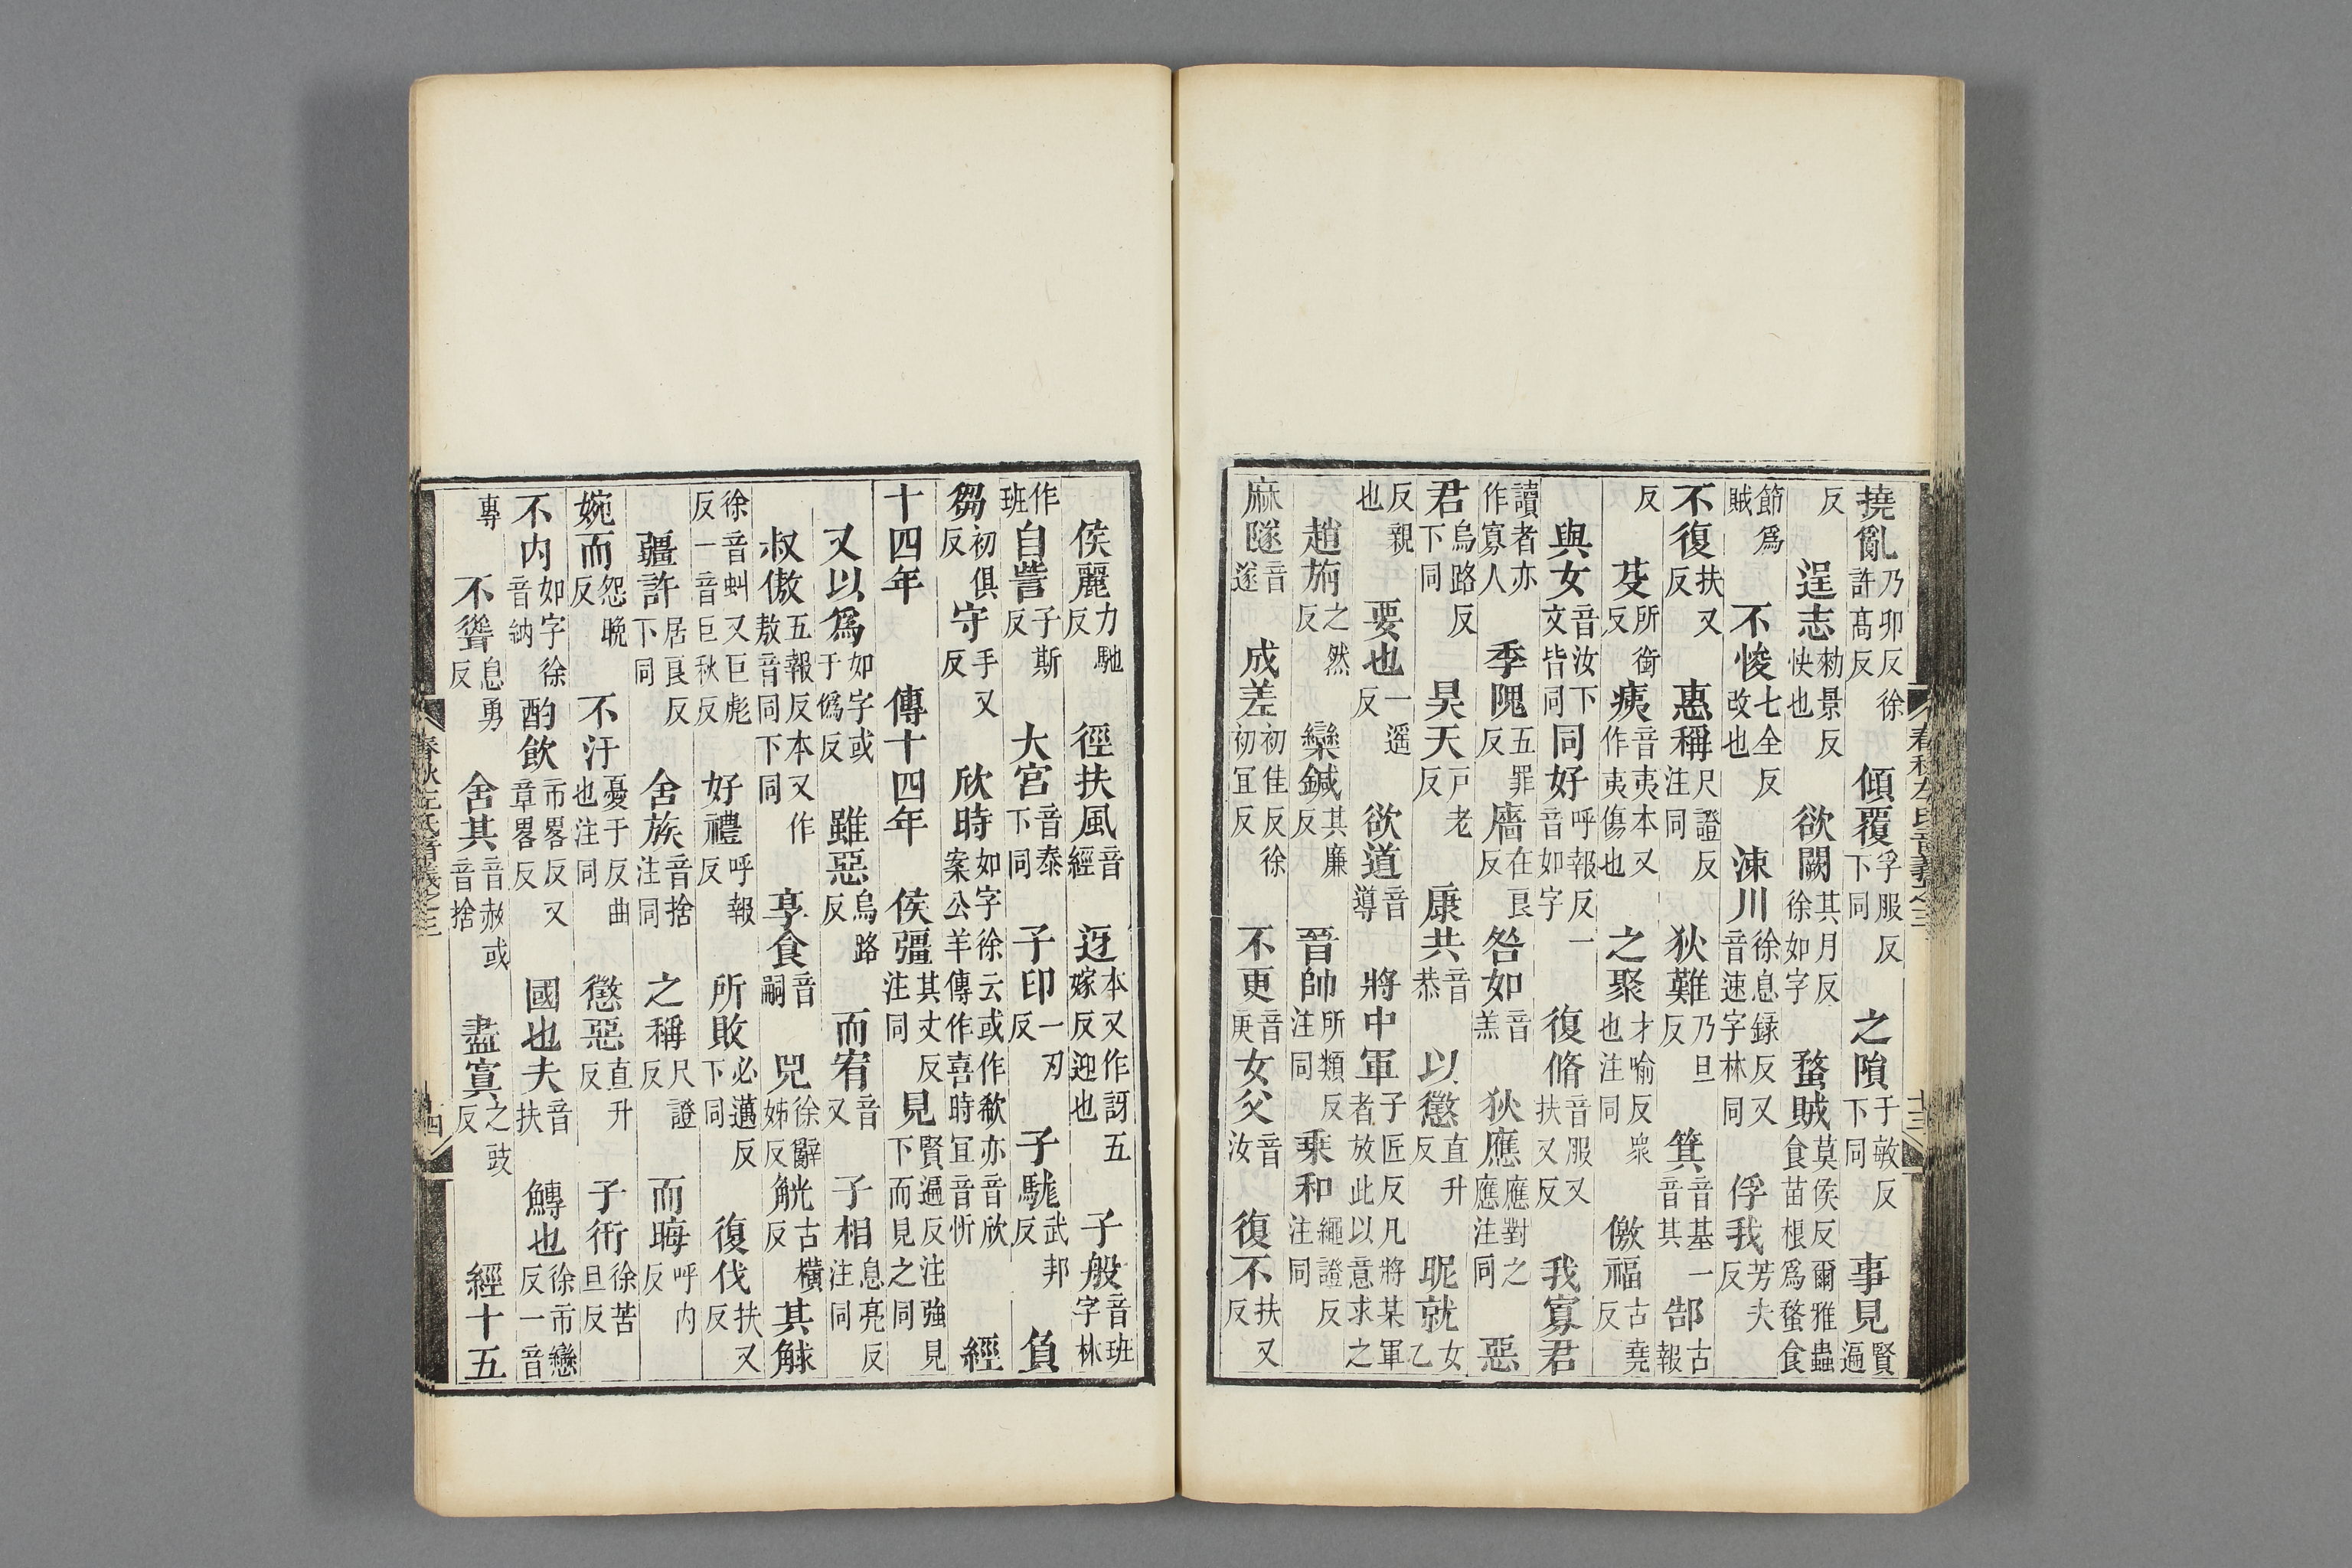 撓亂乃卯反徐許髙反傾覆孚服反下同之隕于敏反下同事見賢遍
反逞志勑景反快也欲闕其月反徐如字蝥賊莫侯反爾雅蟲食苗根爲蝥食
節爲賊不悛七全反改也涑川徐息録反又音速字林同俘我芳夫反
不復扶又反惠稱尺證反注同狄難乃旦反箕音基一音其郜古報
反芟所銜反痍音夷本又作夷傷也之聚才喻反衆也注同儌福古堯反
與女音汝下文皆同同好呼報反一音如字復脩音服又扶又反我寡君
讀者亦作寡人季隗五罪反廧在良反咎如音羔狄應應對之應注同惡
君烏路反下同昊天戸老反康共音恭以懲直升反昵就女乙
反親也要也一遥反欲道音導將中軍子匠反凡將某軍者放此以意求之
趙旃之然反欒鍼其廉反晉帥所類反注同乗和繩證反注同
麻隧音遂成差初佳反徐初宜反不更音庚女父音汝復不扶又反
春秋左氏音義之三
十三
侯麗力馳反徑扶風音經迓本又作訝五嫁反迎也子般音班字林
作班自訾子斯反大宫音泰下同子印一刃反子駹武邦反負
芻初俱反守手又反欣時如字徐云或作欷亦音欣案公羊傳作喜時宜音忻經
十四年傳十四年侯彊其丈反注同見賢遍反注強見下而見之同
又以爲如字或于僞反雖惡烏路反而宥音又子相息亮反注同
叔傲五報反本又作敖音同下同享食音嗣兕徐辭姊反觥古横反其觩
徐音虯又巨彪反一音巨秋反好禮呼報反所敗必邁反下同復伐扶又反
疆許居良反下同舍族音捨注同之稱尺證反而晦呼内反
婉而怨晚反不汙憂于反曲也注同懲惡直升反子衎徐苦旦反
不内如字徐音納酌飲市畧反又章畧反國也夫音扶鱄也徐市戀反一音
專不聳息勇反舍其音赦或音捨盡寘之豉反經十五
春秋左氏音義之三
十四